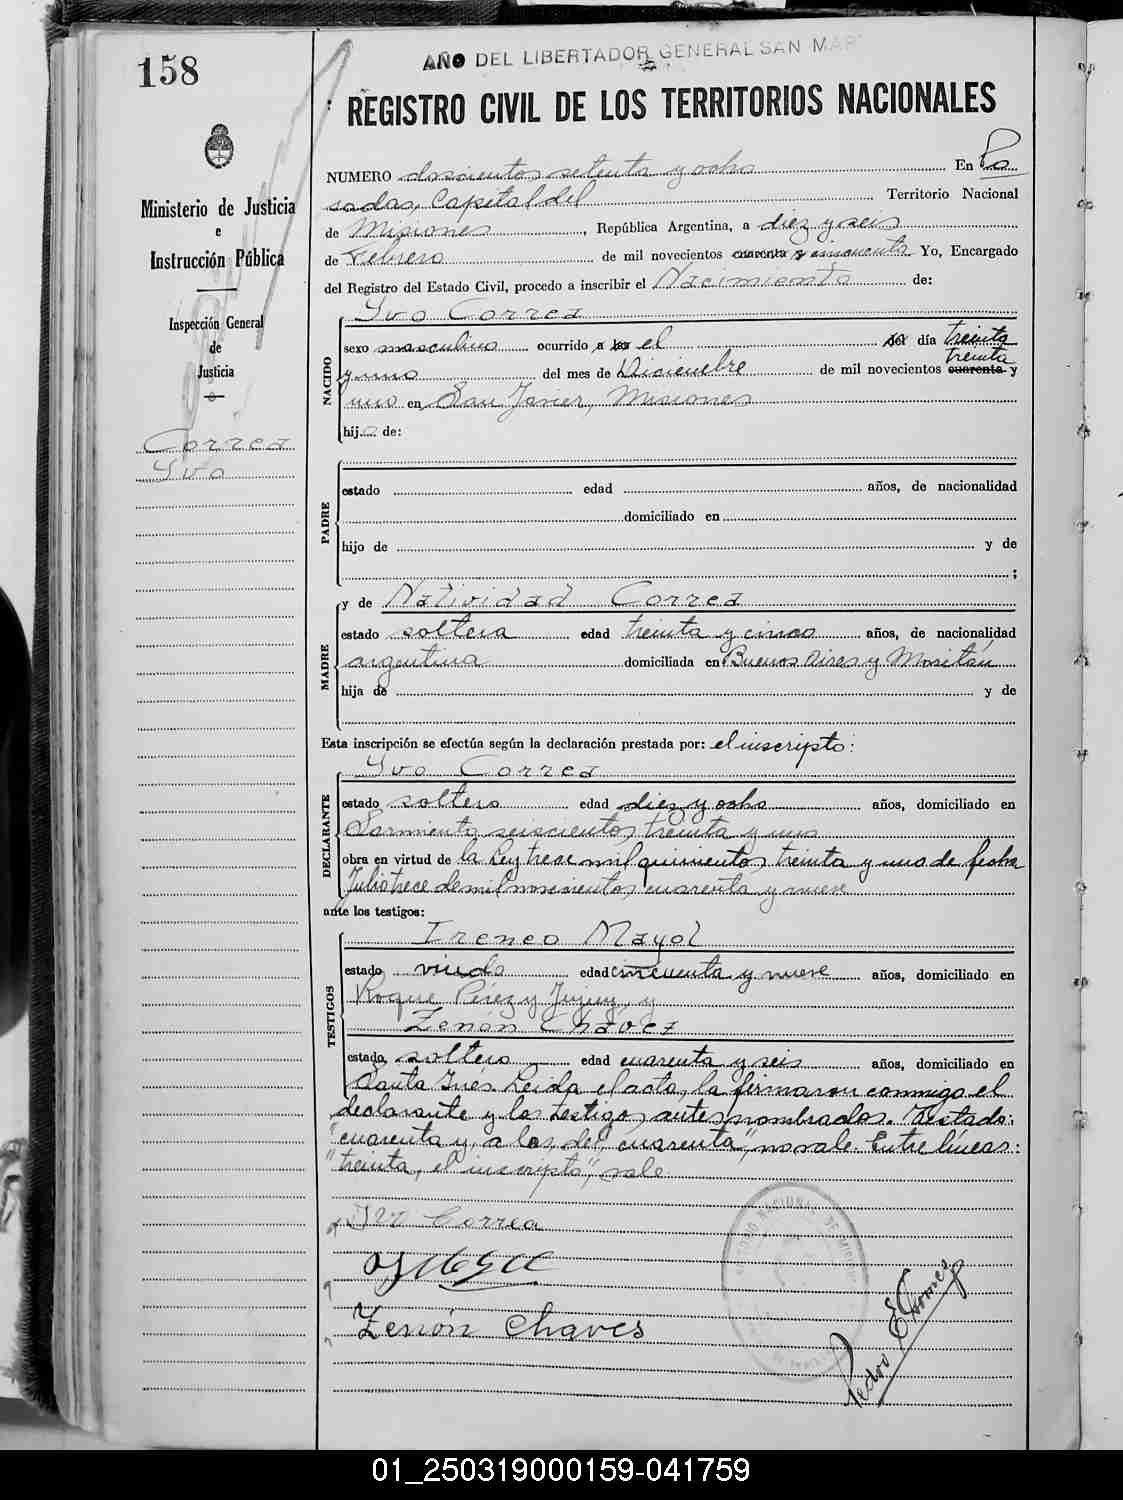 158
AÑO DEL LIBERTADOR GENERAL SAN MAR
REGISTRO CIVIL DE LOS TERRITORIOS NACIONALES
Ministerio de Justicia
e
Instrucción Pública
Inspección General
de
Justicia
Correa
Ivo
NUMERO doscientos setenta y ocho En Po
sadas, Capital del Territorio Nacional
de Misiones, República Argentina, a diez y seis
de Febrero de mil novecientos cuarenta y cincuenta Yo, Encargado
del Registro del Estado Civil, procedo a inscribir el Nacimiento de:
NACIDO
Ivo Correa
sexo masculino ocurrido a las el del día treinta
treinta
y uno del mes de Diciembre de mil novecientos cuarenta y
uno en San Javier, Misiones
hijo de:
PADRE
estado edad años, de nacionalidad
domiciliado en
hijo de y de
;
MADRE
y de Natividad Correa
estado soltera edad treinta y cinco años, de nacionalidad
argentina domiciliada en Buenos Aires y Mositán
hija de y de
Esta inscripción se efectúa según la declaración prestada por: el inscripto:
DECLARANTE
Ivo Correa
estado soltero edad diez y ocho años, domiciliado en
Sarmiento seiscientos treinta y uno
obra en virtud de la Ley trece mil quinientos treinta y uno de fecha
Julio trece de mil novecientos cuarenta y nueve
ante los testigos:
TESTIGOS
Ireneo Mayol
estado viudo edad cincuenta y nueve años, domiciliado en
Roque Pérez y Jujuy, y
Zenón Chávez
estado soltero edad cuarenta y seis años, domiciliado en
Santa Inés. Leída el acta, la firmaron conmigo el
declarante y los testigos antes nombrados. Testado:
"cuarenta y, a las, del, cuarenta", no vale. Entre líneas:
"treinta, el inscripto", vale
Ivo Correa
Zenón Chaves
Pedro E Gomez
01_250319000159-041759